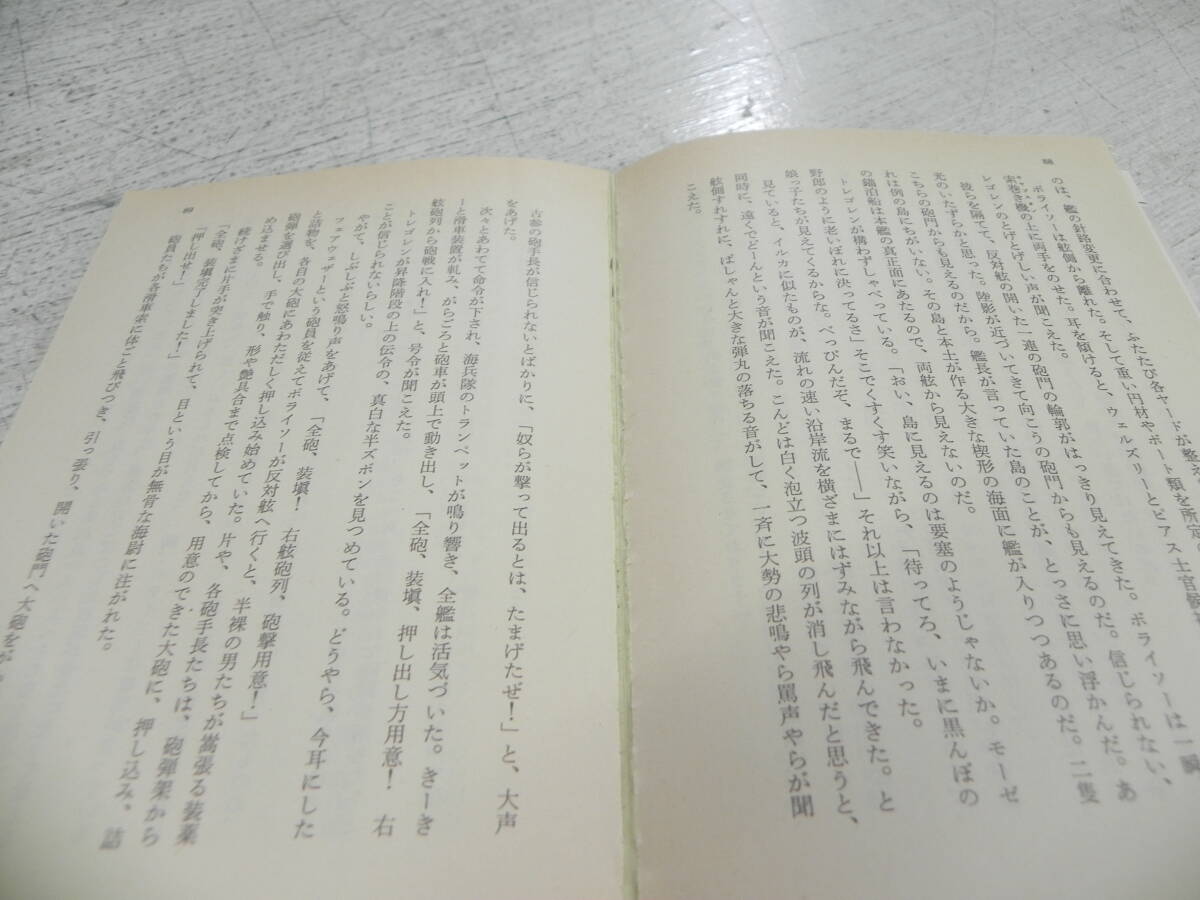 88
のは、艦の針路変更に合わせて、ふたたび各ヤードが整
ボライソーは舷側から離れた。そして重い円材やボート類を所定
索巻き機の上に両手をのせた。耳を傾けると、ウェルズリーとピアス士官候補
レゴレンのとげとげしい声が聞こえた。
彼らを隔てて、反対舷の開いた一連の砲門の輪郭がはっきり見えてきた。ボライソーは一瞬
光のいたずらかと思った。陸影が近づいてきて向こうの砲門からも見えるのだ。信じられない、
こちらの砲門からも見えるのだから。艦長が言っていた島のことが、とっさに思い浮かんだ。あ
れは例の島にちがいない。その島と本土が作る大きな楔形の海面に艦が入りつつあるのだ。二隻
の錨泊船は本艦の真正面にあたるので、両舷から見えないのだ。
トレゴレンが構わずしゃべっている。「おい、島に見えるのは要塞のようじゃないか。モーゼ
野郎のように老いぼれに決ってるさ」そこでくすくす笑いながら、「待ってろ、いまに黒んぼの
娘っ子たちが見えてくるからな。べっぴんだぞ、まるで――」それ以上は言わなかった。
見ていると、イルカに似たものが、流れの速い沿岸流を横ざまにはずみながら飛んできた。と
同時に、遠くでどーんという音が聞こえた。こんどは白く泡立つ波頭の列が消し飛んだと思うと、
舷側すれすれに、ばしゃんと大きな弾丸の落ちる音がして、一斉に大勢の悲鳴やら罵声やらが聞
こえた。
古参の砲手長が信じられないとばかりに、「奴らが撃って出るとは、たまげたぜ！」と、大声
をあげた。
次々とあわてて命令が下され、海兵隊のトランペットが鳴り響き、全艦は活気づいた。きーき
ーと滑車装置が軋み、がらごろと砲車が頭上で動き出し、「全砲、装塡、押し出し方用意！　右
舷砲列から砲戦に入れ！」と、号令が聞こえた。
トレゴレンが昇降階段の上の伝令の、真白な半ズボンを見つめている。どうやら、今耳にした
ことが信じられないらしい。
やがて、しぶしぶと怒鳴り声をあげて、「全砲、装塡！　右舷砲列、砲撃用意！」
フェアウェザーという砲員を従えてボライソーが反対舷へ行くと、半裸の男たちが嵩張る装薬
と詰物を、各自の大砲にあわただしく押し込み始めていた。片や、各砲手長たちは、砲弾架から
砲弾を選び出し、手で触り、形や艶具合まで点検してから、用意のできた大砲に、押し込み、詰
め込ませる。
続けざまに片手が突き上げられて、目という目が無骨な海尉に注がれた。
「全砲、装塡完了しました！」
「押し出せ！」
砲員たちが各滑車索に体ごと飛びつき、引っ張り、開いた砲門へ大砲を
89